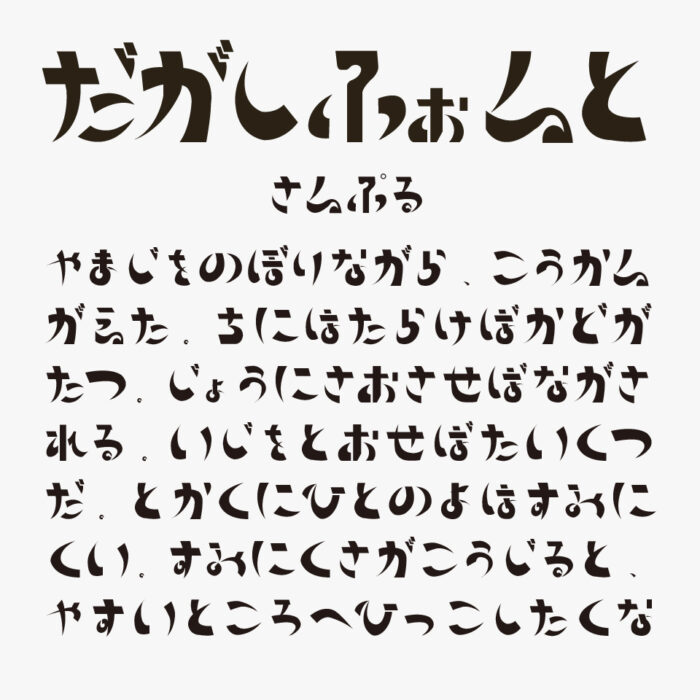 だがしふぉんと
さんぷる
やまじをのぼりながら、こうかん
がえた。ちにはたらけばかどが
たつ。じょうにさおさせばながさ
れる。いじをとおせばたいくつ
だ。とかくにひとのよはすみに
くい。すみにくさがこうじると、
やすいところへひっこしたくな